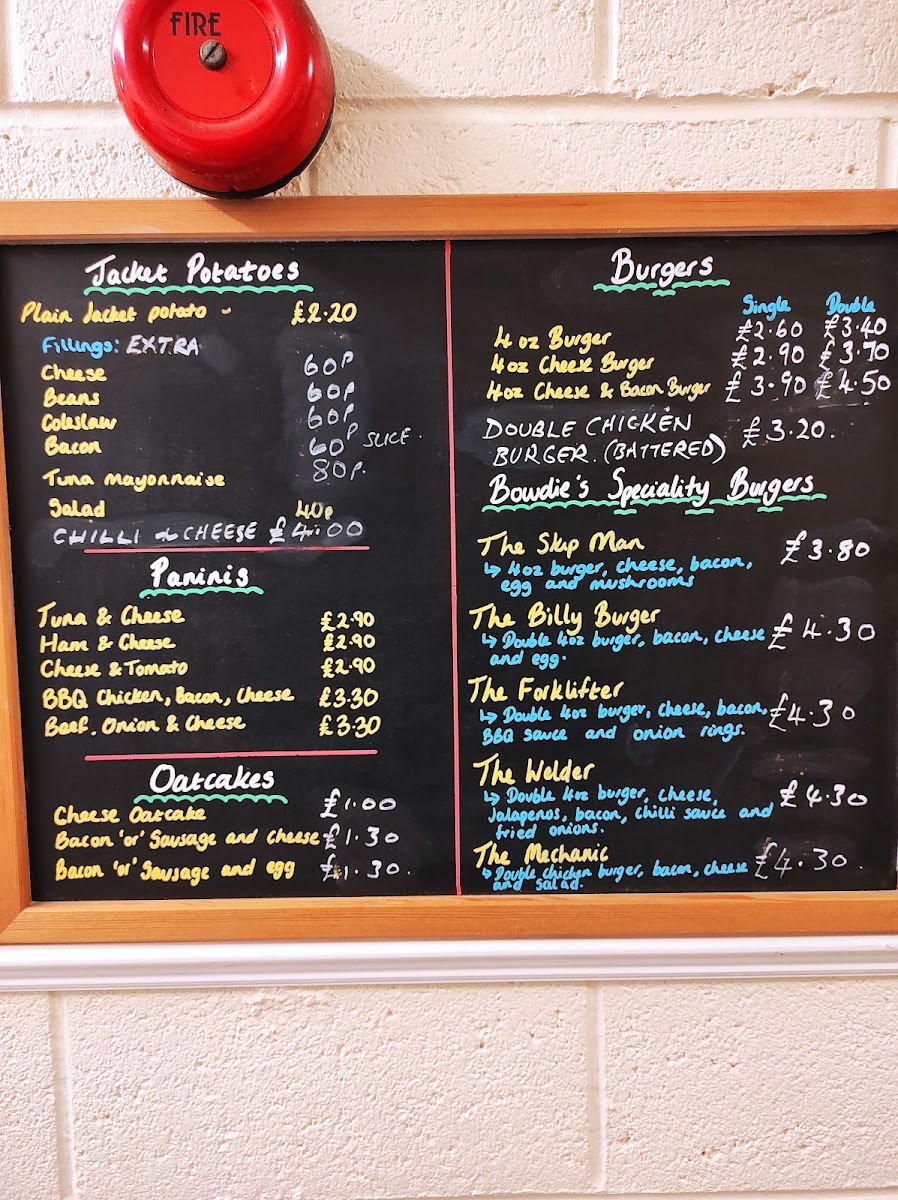 FIRE
Jacket Potatoes
Plain Jacket potato - £2.20
Fillings: EXTRA
Cheese 60p
Beans 60p
Coleslaw 60p
Bacon 60p SLICE.
Tuna mayonnaise 80p.
Salad 40p
CHILLI & CHEESE £4.00
Paninis
Tuna & Cheese £2.90
Ham & Cheese £2.90
Cheese & Tomato £2.90
BBQ Chicken, Bacon, Cheese £3.30
Beef, Onion & Cheese £3.30
Oatcakes
Cheese Oatcake £1.00
Bacon 'or' Sausage and cheese £1.30
Bacon 'or' Sausage and egg £1.30.
Burgers
Single Double
4oz Burger £2.60 £3.40
4oz Cheese Burger £2.90 £3.70
4oz Cheese & Bacon Burger £3.90 £4.50
DOUBLE CHICKEN
BURGER. (BATTERED) £3.20.
Bowdie's Speciality Burgers
The Skip Man £3.80
↳ 4oz burger, cheese, bacon,
egg and mushrooms
The Billy Burger
↳ Double 4oz burger, bacon, cheese £4.30
and egg.
The Forklifter
↳ Double 4oz burger, cheese, bacon, £4.30
BBQ sauce and onion rings.
The Welder
↳ Double 4oz burger, cheese, £4.30
Jalapenos, bacon, chilli sauce and
fried onions.
The Mechanic £4.30.
↳ Double chicken burger, bacon, cheese
and salad.